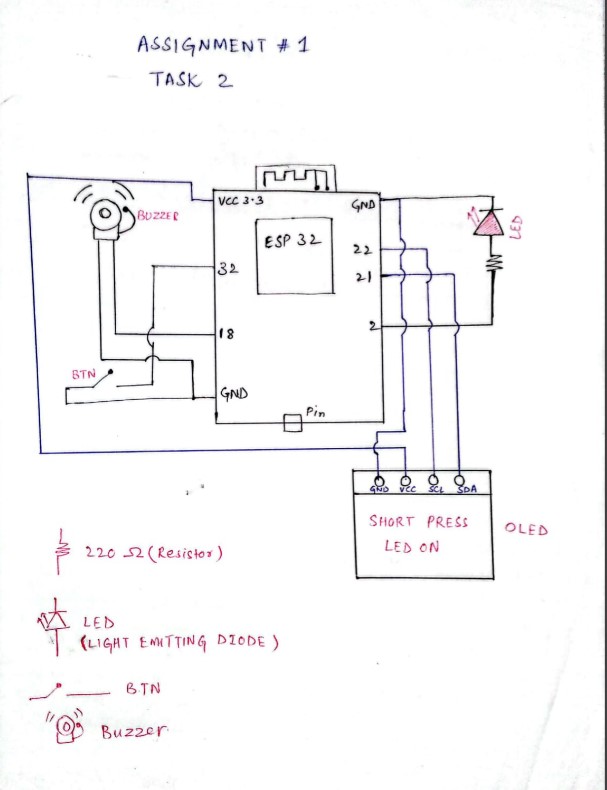 ASSIGNMENT # 1
TASK 2
BUZZER
VCC 3.3
GND
ESP 32
LED
22
32
21
18
2
BTN
GND
Pin
GND VCC SCL SDA
SHORT PRESS
LED ON
OLED
220 Ω (Resistor)
LED
(LIGHT EMITTING DIODE)
BTN
Buzzer